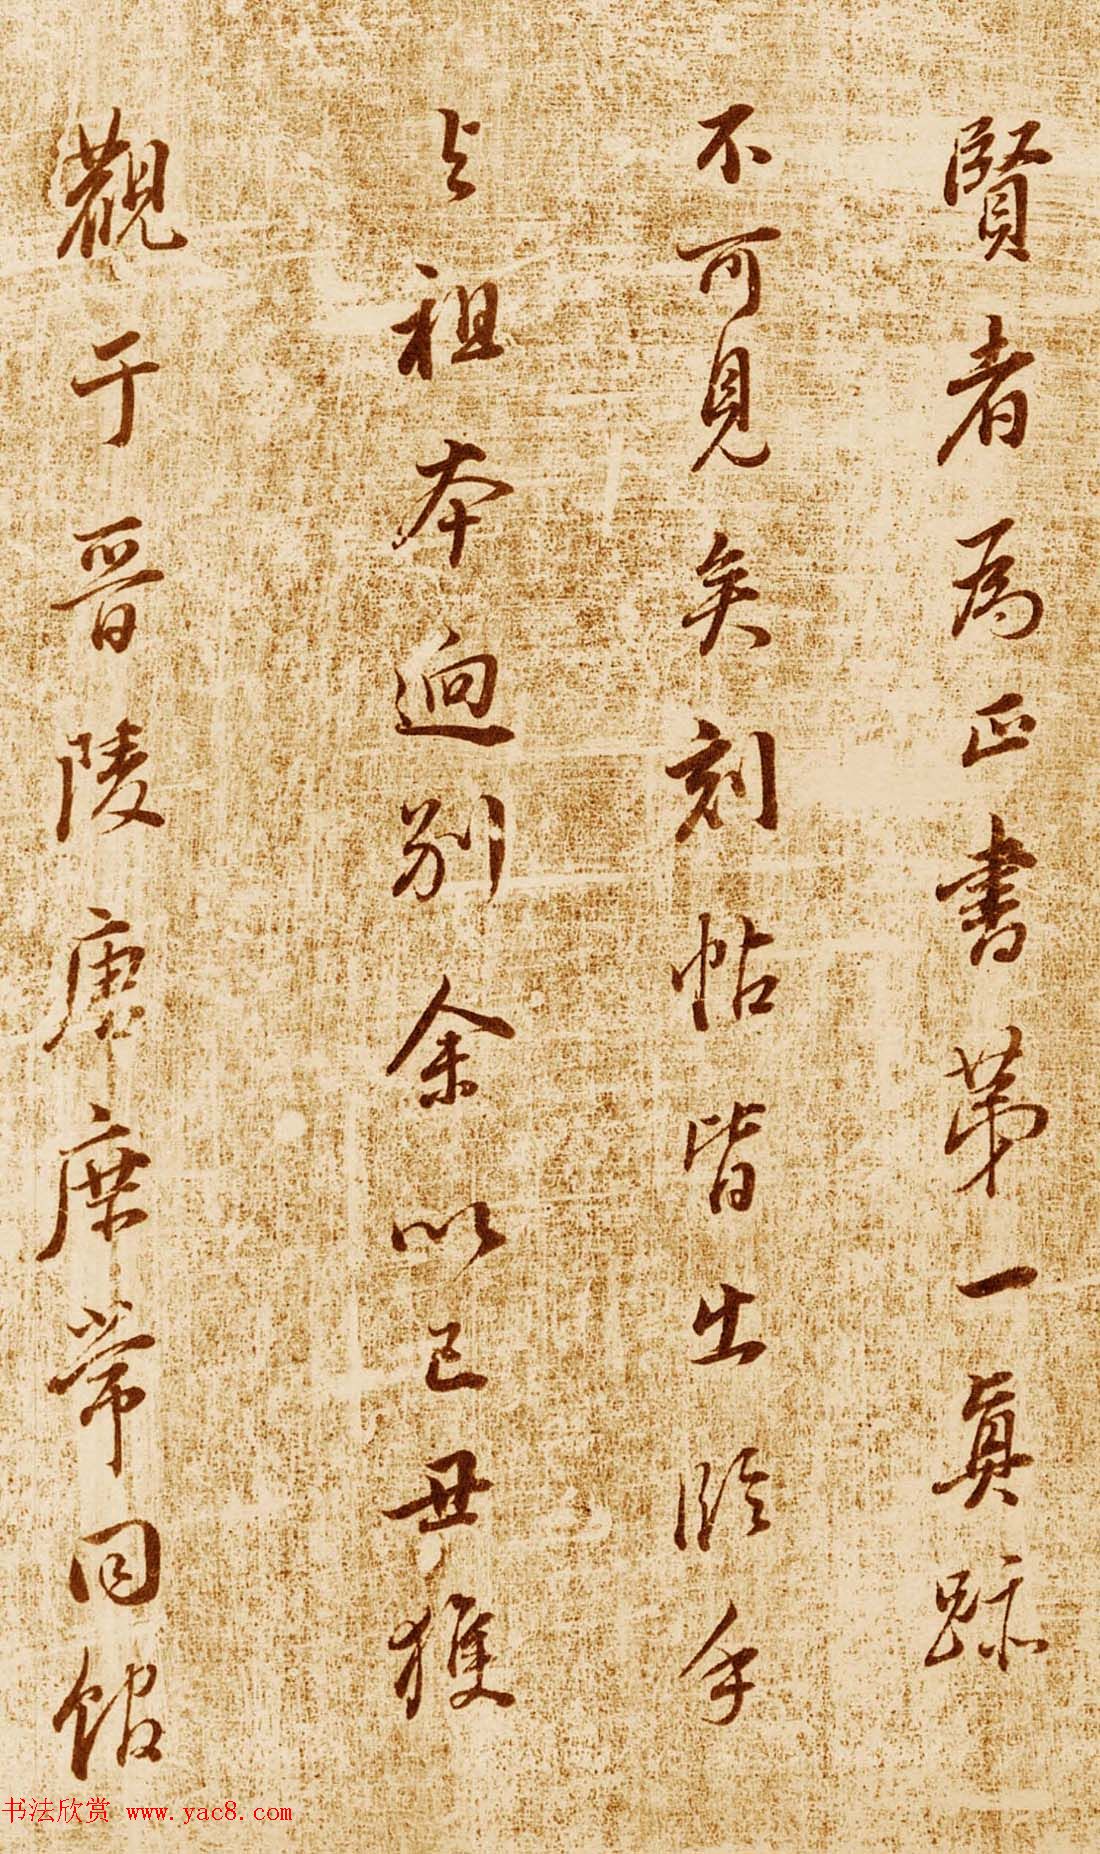 賢者為正書第一真跡
不可見矣刻帖皆出臨手
与祖本迥别余以己丑獲
觀于晉陵唐庶常同館
书法欣赏 www.yac8.com